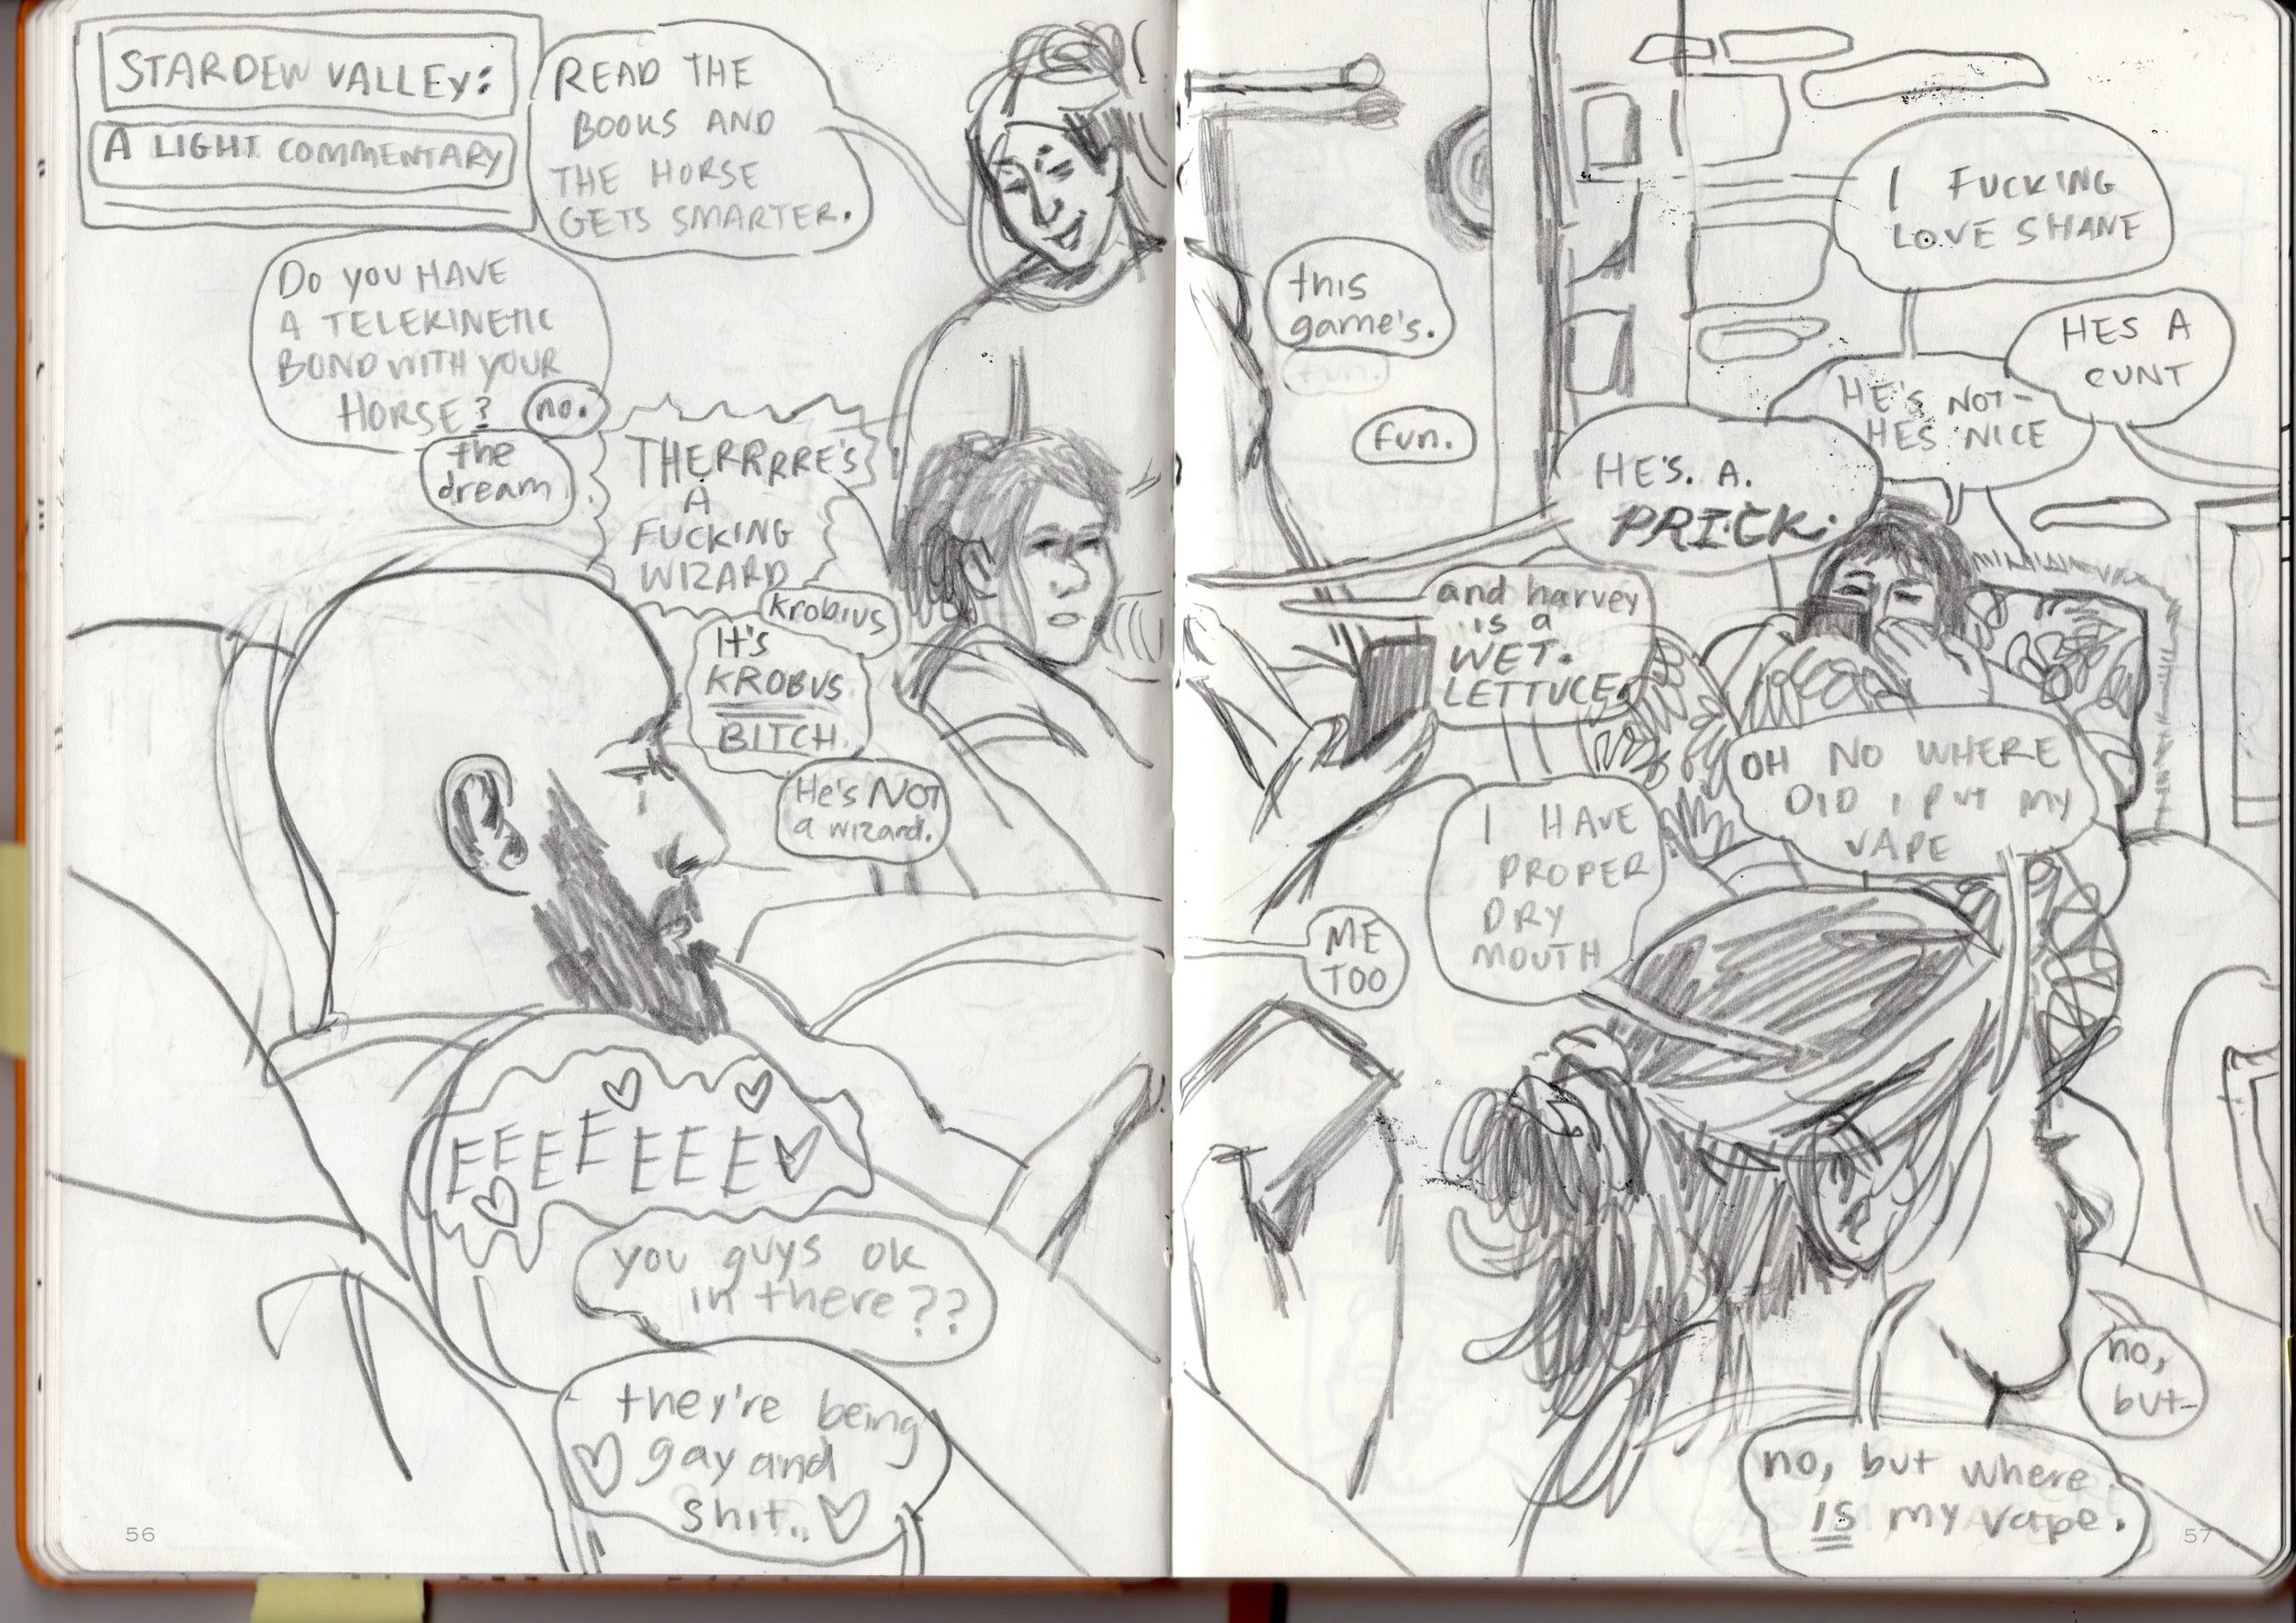 STARDEW VALLEY:
A LIGHT COMMENTARY
READ THE
BOOKS AND
THE HORSE
GETS SMARTER.
DO YOU HAVE
A TELEKINETIC
BOND WITH YOUR
HORSE?
no.
the
dream
THERRRRE'S
A
FUCKING
WIZARD
Krobius
It's
KROBUS
BITCH.
He's NOT
a wizard.
EEEEEEE
you guys ok
in there??
they're being
gay and
shit..
56
this
game's.
fun.
fun.
I FUCKING
LOVE SHANE
HES A
CUNT
HE'S NOT-
HES NICE
HE'S. A.
PRICK.
and harvey
is a
WET.
LETTUCE.
OH NO WHERE
DID I PUT MY
VAPE
I HAVE
PROPER
DRY
MOUTH
ME
TOO
no,
but-
no, but where
IS my vape.
57